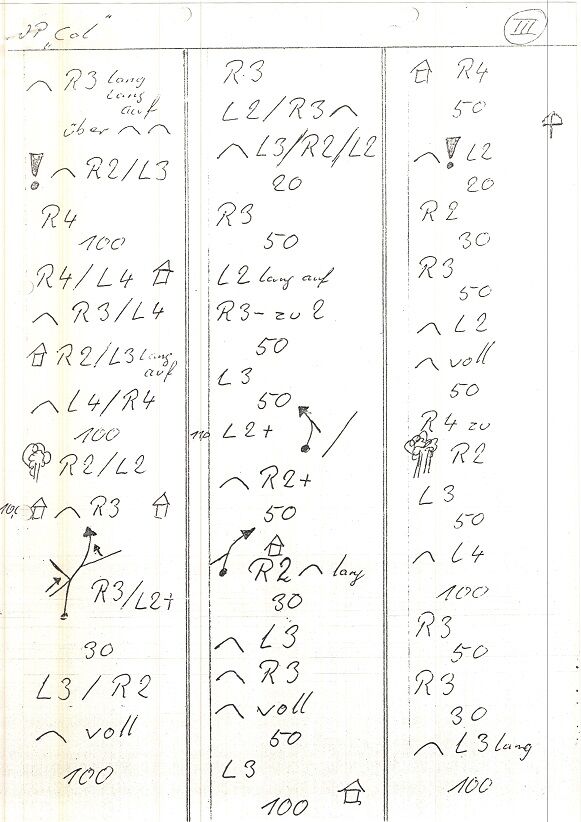 III
R3 lang
lang
auf
über
! R2/L3
R4
100
R4/L4
R3/L4
R2/L3 lang
auf
L4/R4
100
R2/L2
R3
R3/L2+
30
L3/R2
voll
100
R3
L2/R3
L3/R2/L2
20
R3
50
L2 lang auf
R3- zu 2
50
L3
50
L2+
R2+
50
R2 lang
30
L3
R3
voll
50
L3
100
R4
50
! L2
20
R2
30
R3
50
L2
voll
50
R4 zu
R2
L3
50
L4
100
R3
50
R3
30
L3 lang
100